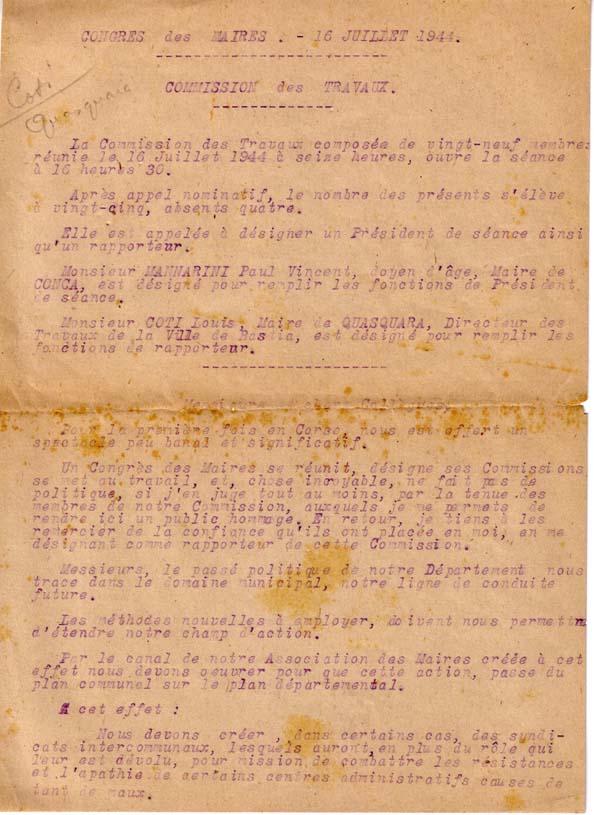 CONGRES des MAIRES. - 16 JUILLET 1944.
COMMISSION des TRAVAUX.
Coti
Quasquara
La Commission des Travaux composée de vingt-neuf membres
réunie le 16 Juillet 1944 à seize heures, ouvre la séance
à 16 heures 30.
Après appel nominatif, le nombre des présents s'élève
à vingt-cinq, absents quatre.
Elle est appelée à désigner un Président de séance ainsi
qu'un rapporteur.
Monsieur MANNARINI Paul Vincent, doyen d'âge, Maire de
CONCA, est désigné pour remplir les fonctions de Président
de séance.
Monsieur COTI Louis, Maire de QUASQUARA, Directeur des
Travaux de la Ville de Bastia, est désigné pour remplir les
fonctions de rapporteur.
Messieurs
Pour la première fois en Corse, nous est offert un
spectacle peu banal et significatif.
Un Congrès des Maires se réunit, désigne ses Commissions
se met au travail, et, chose incroyable, ne fait pas de
politique, si j'en juge tout au moins, par la tenue des
membres de notre Commission, auxquels je me permets de
rendre ici un public hommage. En retour, je tiens à les
remercier de la confiance qu'ils ont placée en moi, en me
désignant comme rapporteur de cette Commission.
Messieurs, le passé politique de notre Département nous
trace dans le domaine municipal, notre ligne de conduite
future.
Les méthodes nouvelles à employer, doivent nous permettre
d'étendre notre champ d'action.
Par le canal de notre Association des Maires créée à cet
effet nous devons oeuvrer pour que cette action, passe du
plan communal sur le plan départemental.
A cet effet :
Nous devons créer, dans certains cas, des syndi-
cats intercommunaux, lesquels auront, en plus du rôle qui
leur est dévolu, pour mission de combattre les résistances
et l'apathie de certains centres administratifs causes de
tant de maux.